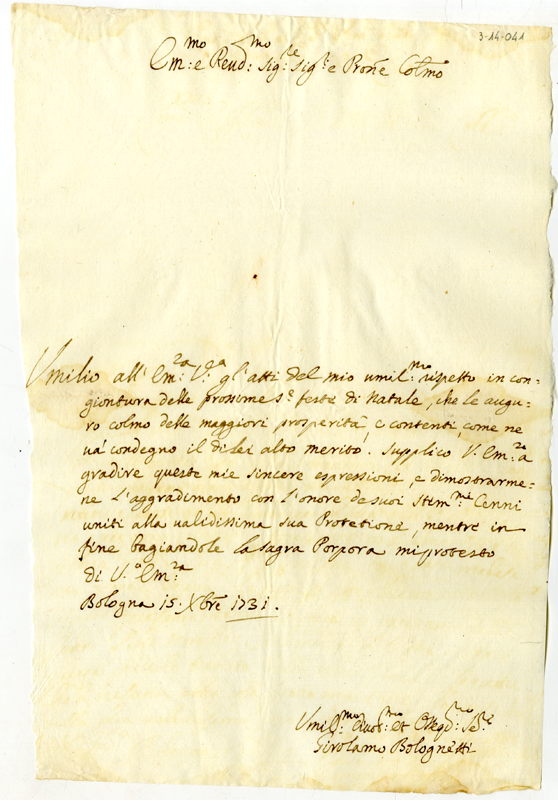 3-14-041
Em:mo e Revd:mo Sig:re Sig:re e Prone Colmo
Umilio all' Em:za V:ra gl'atti del mio umil:mo rispetto in con-
giontura delle prossime S:e feste di Natale, che le augu-
ro colmo delle maggiori prosperità, e contenti, come ne
và condegno il di lei alto merito. Supplico V. Em:za a
gradire queste mie sincere espressioni, e dimostrarme-
ne l'aggradimento con l'onore de suoi stim:mi Cenni
uniti alla validissima sua Protetione, mentre in
fine bagiandole la sagra Porpora mi protesto
di V:a Em:za
Bologna 15. Xbre 1731.
Umil:mo Divot:mo et Obegd:mo Se:re
Girolamo Bolognetti